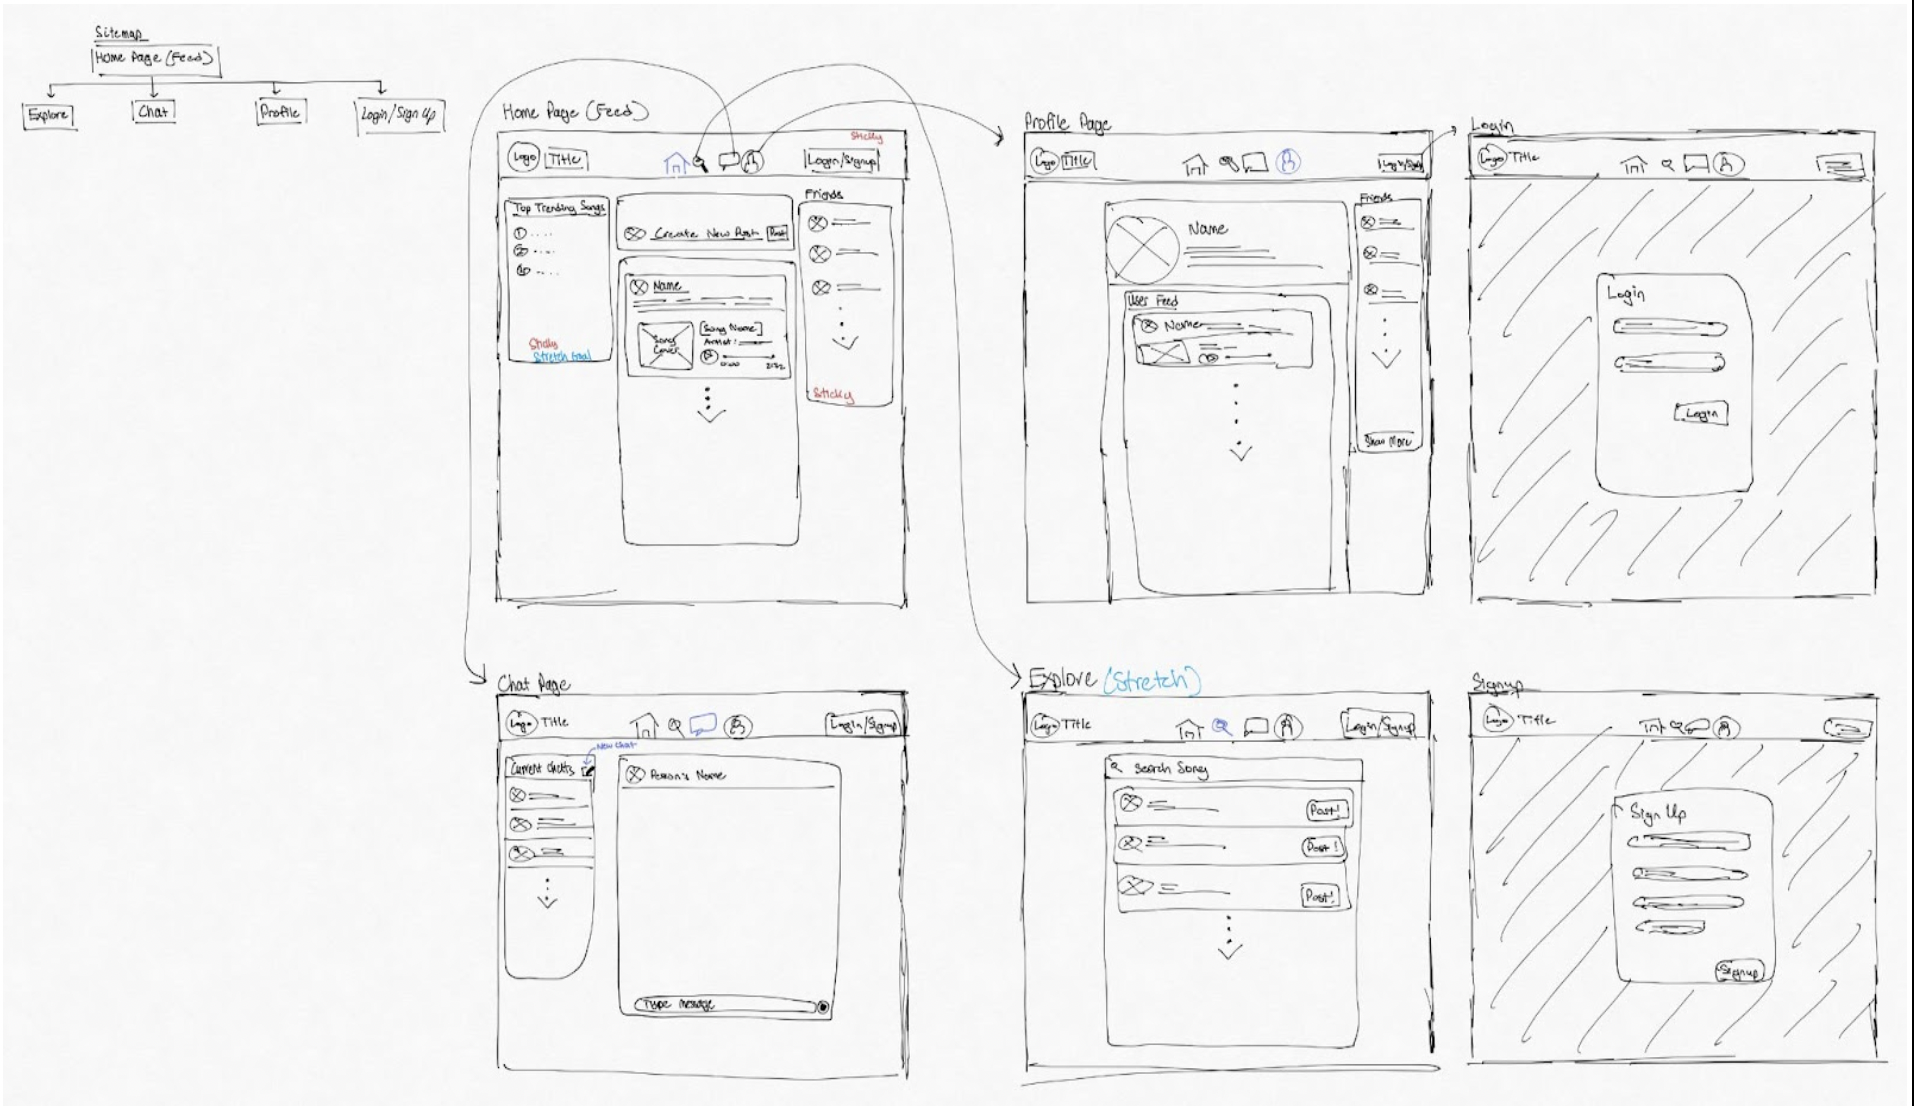 Sitemap
Home Page (Feed)
Explore
Chat
Profile
Login/Sign Up
Home Page (Feed)
Sticky
Logo
Title
Login/Signup
Top Trending Songs
1 ....
2 ....
Sticky
Stretch Goal
Create New Post
Post
Name
Song Cover
Song Name
Artist:
0:00
Friends
Sticky
Profile Page
Logo
Title
Login/Signup
Name
User Feed
Name
Friends
Show More
Login
Logo
Title
Login
Login
Chat Page
Logo
Title
Login/Signup
New Chat
Current Chats
Person's Name
Type message
Explore (Stretch)
Logo
Title
Login/Signup
Search Song
Post!
Post!
Post!
Signup
Logo
Title
Sign Up
Signup